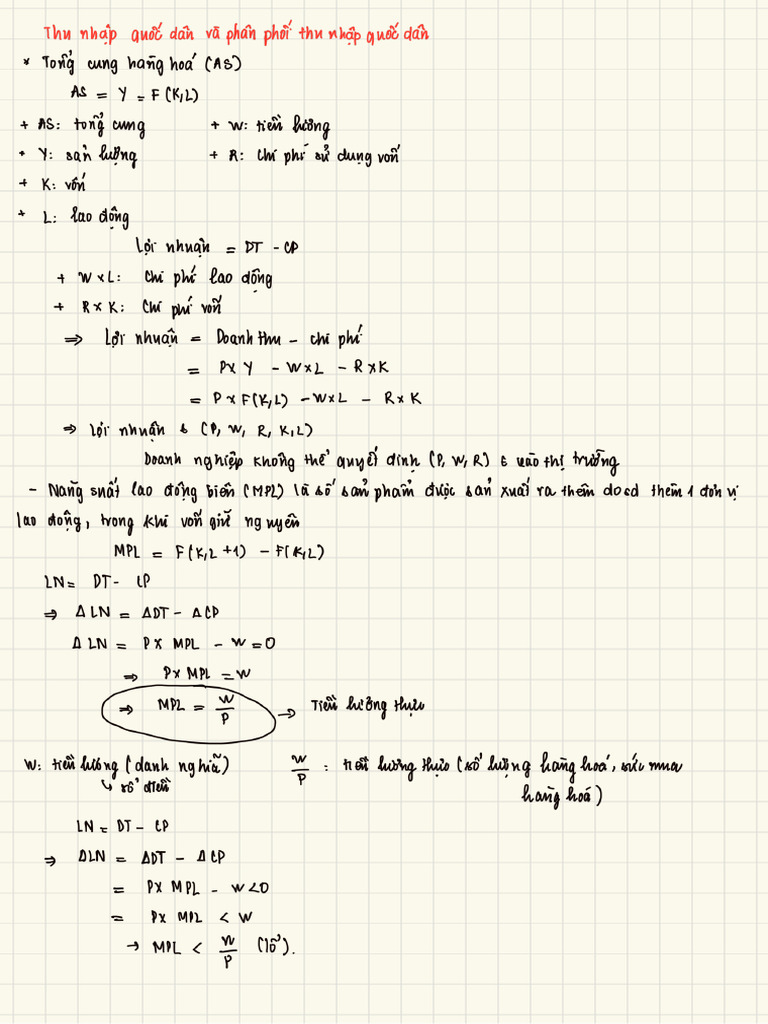 Thu nhập quốc dân và phân phối thu nhập quốc dân
* Tổng cung hàng hoá (AS)
AS = Y = F(K,L)
+ AS: tổng cung + W: tiền lương
+ Y: sản lượng + R: Chi phí sử dụng vốn
+ K: vốn
+ L: lao động
Lợi nhuận = DT - CP
+ W×L: Chi phí lao động
+ R×K: Chi phí vốn
⇒ Lợi nhuận = Doanh thu - chi phí
= P×Y - W×L - R×K
= P×F(K,L) - W×L - R×K
⇒ Lợi nhuận ∈ (P, W, R, K, L)
Doanh nghiệp không thể quyết định (P, W, R) ∈ vào thị trường
- Năng suất lao động biên (MPL) là số sản phẩm được sản xuất ra thêm do sd thêm 1 đơn vị
lao động, trong khi vốn giữ nguyên
MPL = F(K,L+1) - F(K,L)
LN = DT - CP
⇒ ΔLN = ΔDT - ΔCP
ΔLN = P× MPL - W = 0
⇒ P× MPL = W
⇒ MPL = W/P → Tiền lương thực
W: tiền lương (danh nghĩa) W/P : tiền lương thực (số lượng hàng hoá, sức mua
↳ số tiền hàng hoá)
LN = DT - CP
⇒ ΔLN = ΔDT - ΔCP
= P× MPL - W < 0
= P× MPL < W
→ MPL < W/P (lỗ).